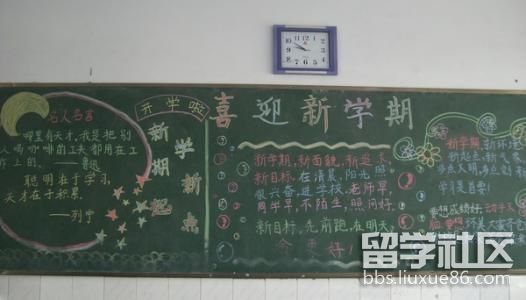 名人名言
哪里有天才,我是把别
人喝咖啡的工夫都用在工
作上的。——鲁迅
聪明在于学习,
天才在于积累。
——列宁
开学啦
新学期
新起点
喜迎新学期
新学期,新面貌,新
新目标,在清晨,阳光照
兴奋进学校,老师早
同学早,不陌生,照问好。
新目标,先前跑,在明天,
会更好!
新学期,新环境
新起点,新气象
多点
学习是首要!
留学社区
bbs.liuxue86.com